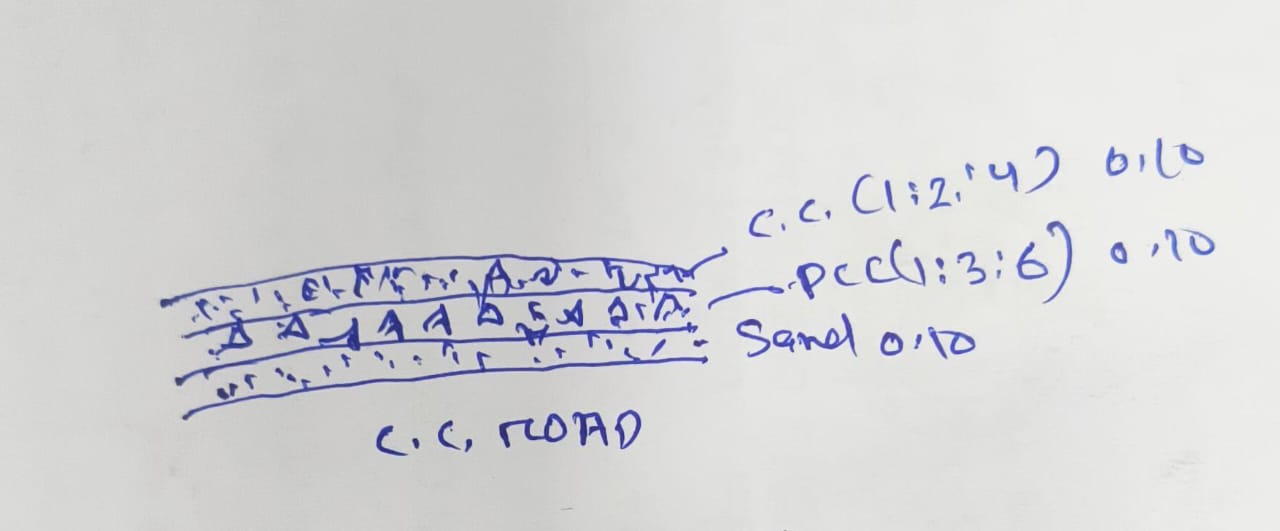 C.C. (1:2:4) 0.10
PCC(1:3:6) 0.10
Sand 0.10
C.C. ROAD